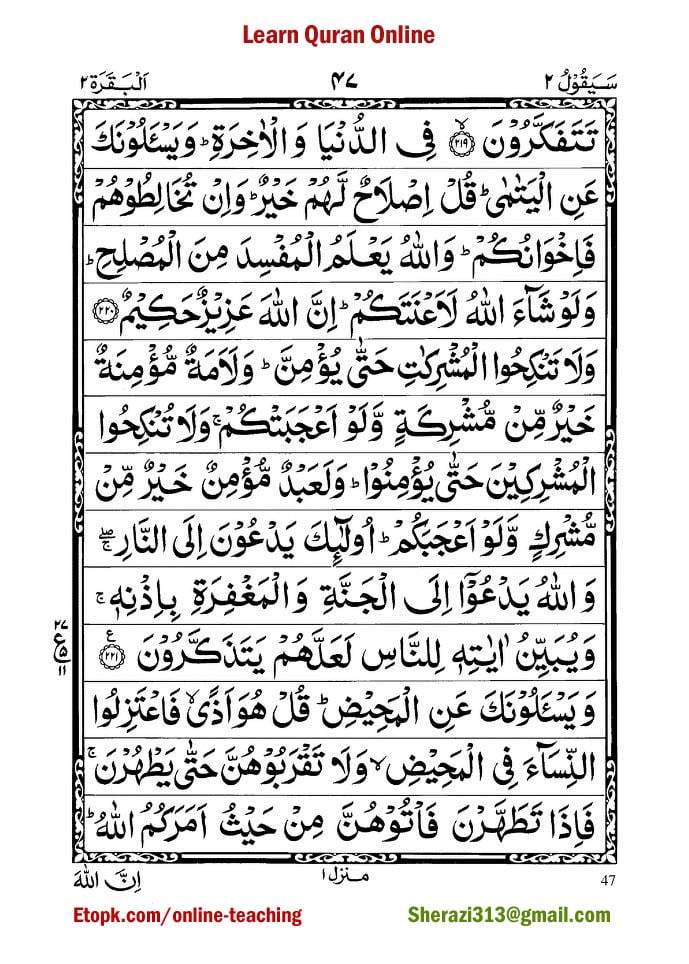 Learn Quran Online
سَيَقُوْلُ ٢ ۴۷ اَلْبَقَرَة ٢
تَتَفَكَّرُوْنَ ﴿٢١٩﴾ۙ فِى الدُّنْيَا وَ الْاٰخِرَةِ ؕ وَيَسْـَٔلُوْنَكَ
عَنِ الْيَتٰمٰى ؕ قُلْ اِصْلَاحٌ لَّهُمْ خَيْرٌ ؕ وَاِنْ تُخَالِطُوْهُمْ
فَاِخْوَانُكُمْ ؕ وَاللّٰهُ يَعْلَمُ الْمُفْسِدَ مِنَ الْمُصْلِحِ ؕ
وَلَوْ شَآءَ اللّٰهُ لَاَعْنَتَكُمْ ؕ اِنَّ اللّٰهَ عَزِيْزٌ حَكِيْمٌ ﴿٢٢٠﴾
وَلَا تَنْكِحُوا الْمُشْرِكٰتِ حَتّٰى يُؤْمِنَّ ؕ وَلَاَمَةٌ مُّؤْمِنَةٌ
خَيْرٌ مِّنْ مُّشْرِكَةٍ وَّلَوْ اَعْجَبَتْكُمْ ۚ وَلَا تُنْكِحُوا
الْمُشْرِكِيْنَ حَتّٰى يُؤْمِنُوْا ؕ وَلَعَبْدٌ مُّؤْمِنٌ خَيْرٌ مِّنْ
مُّشْرِكٍ وَّلَوْ اَعْجَبَكُمْ ؕ اُولٰٓئِكَ يَدْعُوْنَ اِلَى النَّارِ ۖۚ
وَاللّٰهُ يَدْعُوْٓا اِلَى الْجَنَّةِ وَالْمَغْفِرَةِ بِاِذْنِهٖ ۚ
وَيُبَيِّنُ اٰيٰتِهٖ لِلنَّاسِ لَعَلَّهُمْ يَتَذَكَّرُوْنَ ﴿٢٢١﴾ ع
٢٧
ع ٥
١١
وَيَسْـَٔلُوْنَكَ عَنِ الْمَحِيْضِ ؕ قُلْ هُوَ اَذًى ۙ فَاعْتَزِلُوا
النِّسَآءَ فِى الْمَحِيْضِ ۙ وَلَا تَقْرَبُوْهُنَّ حَتّٰى يَطْهُرْنَ ۚ
فَاِذَا تَطَهَّرْنَ فَاْتُوْهُنَّ مِنْ حَيْثُ اَمَرَكُمُ اللّٰهُ ؕ
47 منزل ١ اِنَّ اللّٰهَ
Etopk.com/online-teaching Sherazi313@gmail.com